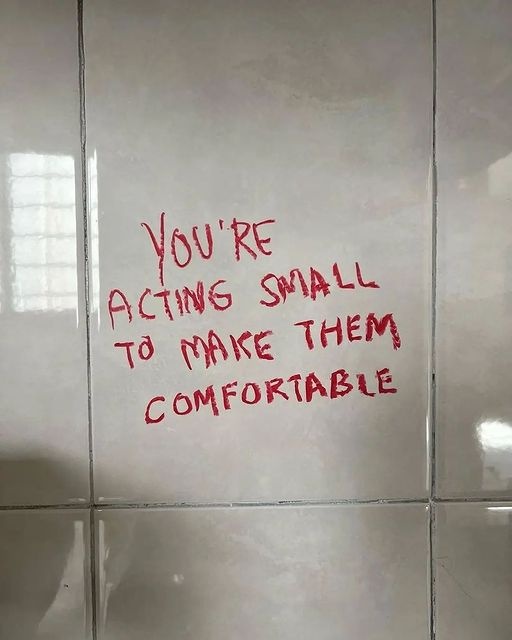 YOU'RE
ACTING SMALL
TO MAKE THEM
COMFORTABLE